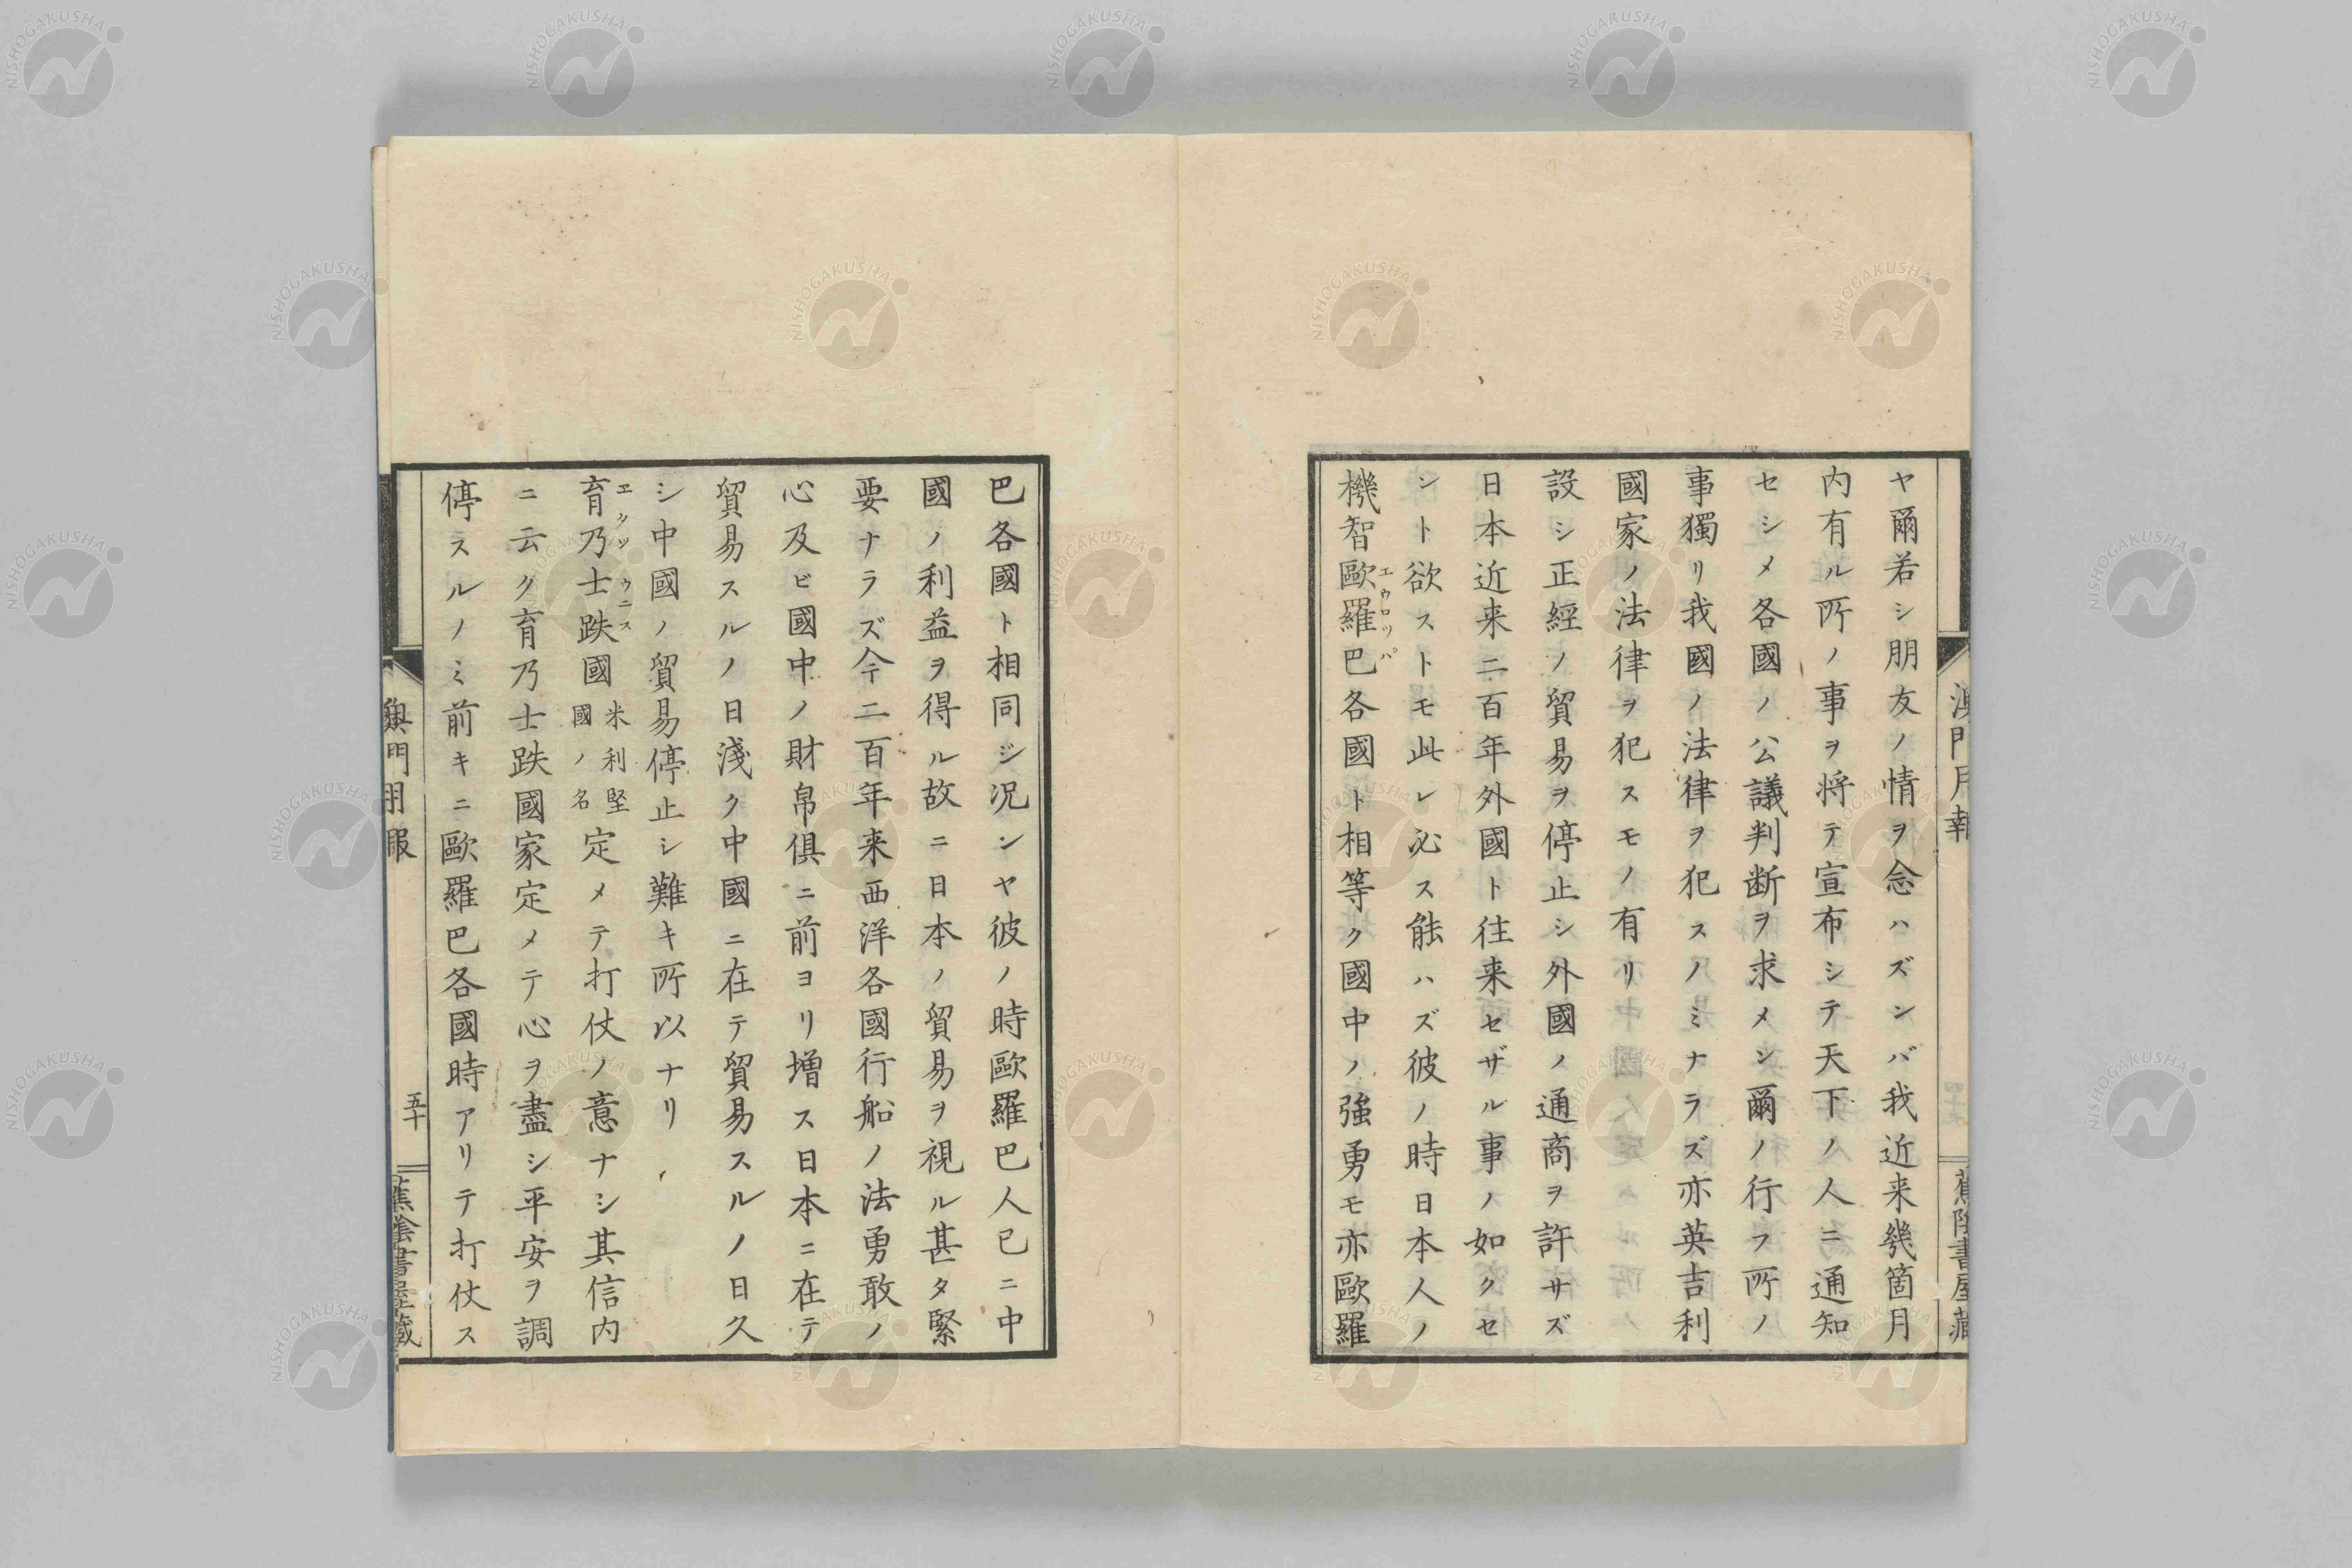 ヤ爾若シ朋友ノ情ヲ念ハズンバ我近来幾箇月
内有ル所ノ事ヲ将テ宣布シテ天下ノ人ニ通知
セシメ各國ノ公議判断ヲ求メン爾ノ行フ所ノ
事獨リ我國ノ法律ヲ犯スノミナラズ亦英吉利
國家ノ法律ヲ犯スモノ有リ
設シ正經ノ貿易ヲ停止シ外國ノ通商ヲ許サズ
日本近来二百年外國ト往来セザル事ノ如クセ
シト欲ストモ此レ必ス能ハズ彼ノ時日本人ノ
機智歐羅巴各國ト相等ク國中ノ強勇モ亦歐羅
エウロツパ
澳門月報
蕉陰書屋藏
巴各國ト相同ジ况ンヤ彼ノ時歐羅巴人已ニ中
國ノ利益ヲ得ル故ニ日本ノ貿易ヲ視ル甚タ緊
要ナラズ今二百年来西洋各國行船ノ法勇敢ノ
心及ビ國中ノ財帛俱ニ前ヨリ増ス日本ニ在テ
貿易スルノ日淺ク中國ニ在テ貿易スルノ日久
シ中國ノ貿易停止シ難キ所以ナリ
育乃士跌國米利堅國ノ名定メテ打仗ノ意ナシ其信内
エクソウニス
ニ云ク育乃士跌國家定メテ心ヲ盡シ平安ヲ調
停スルノミ前キニ歐羅巴各國時アリテ打仗ス
澳門月報
五十
蕉陰書屋藏
NISHOGAKUSHA